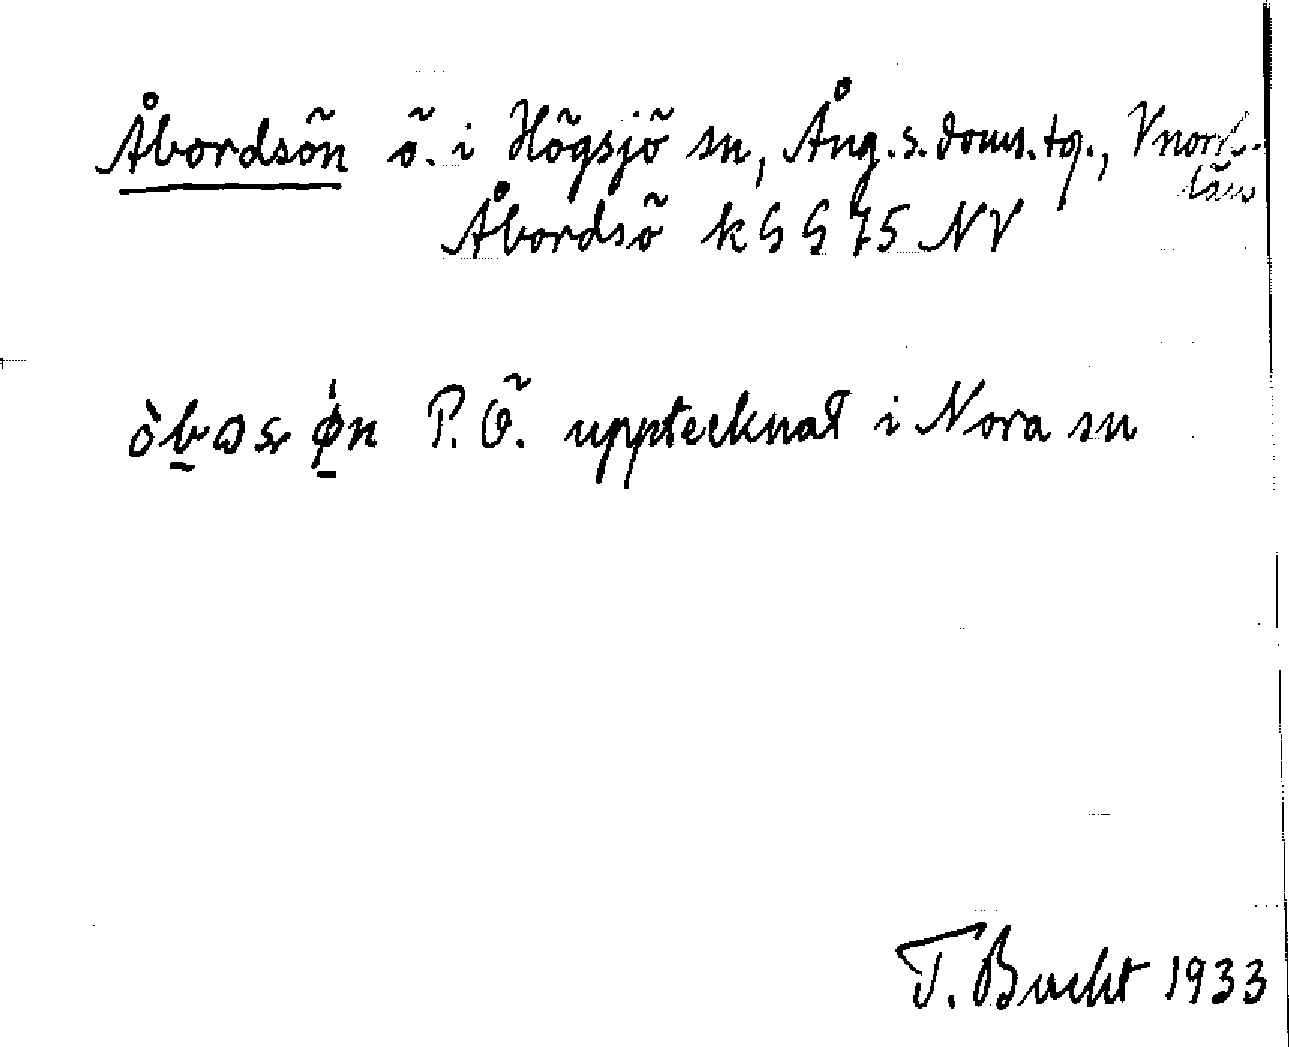 Åbordsön ö. i Högsjö sn, Ång.s. doms.tg., Vnorrl.
län
Åbordsö k GS 75 NV
P. Ö. upptecknat i Nora sn
T. Bucht 1933